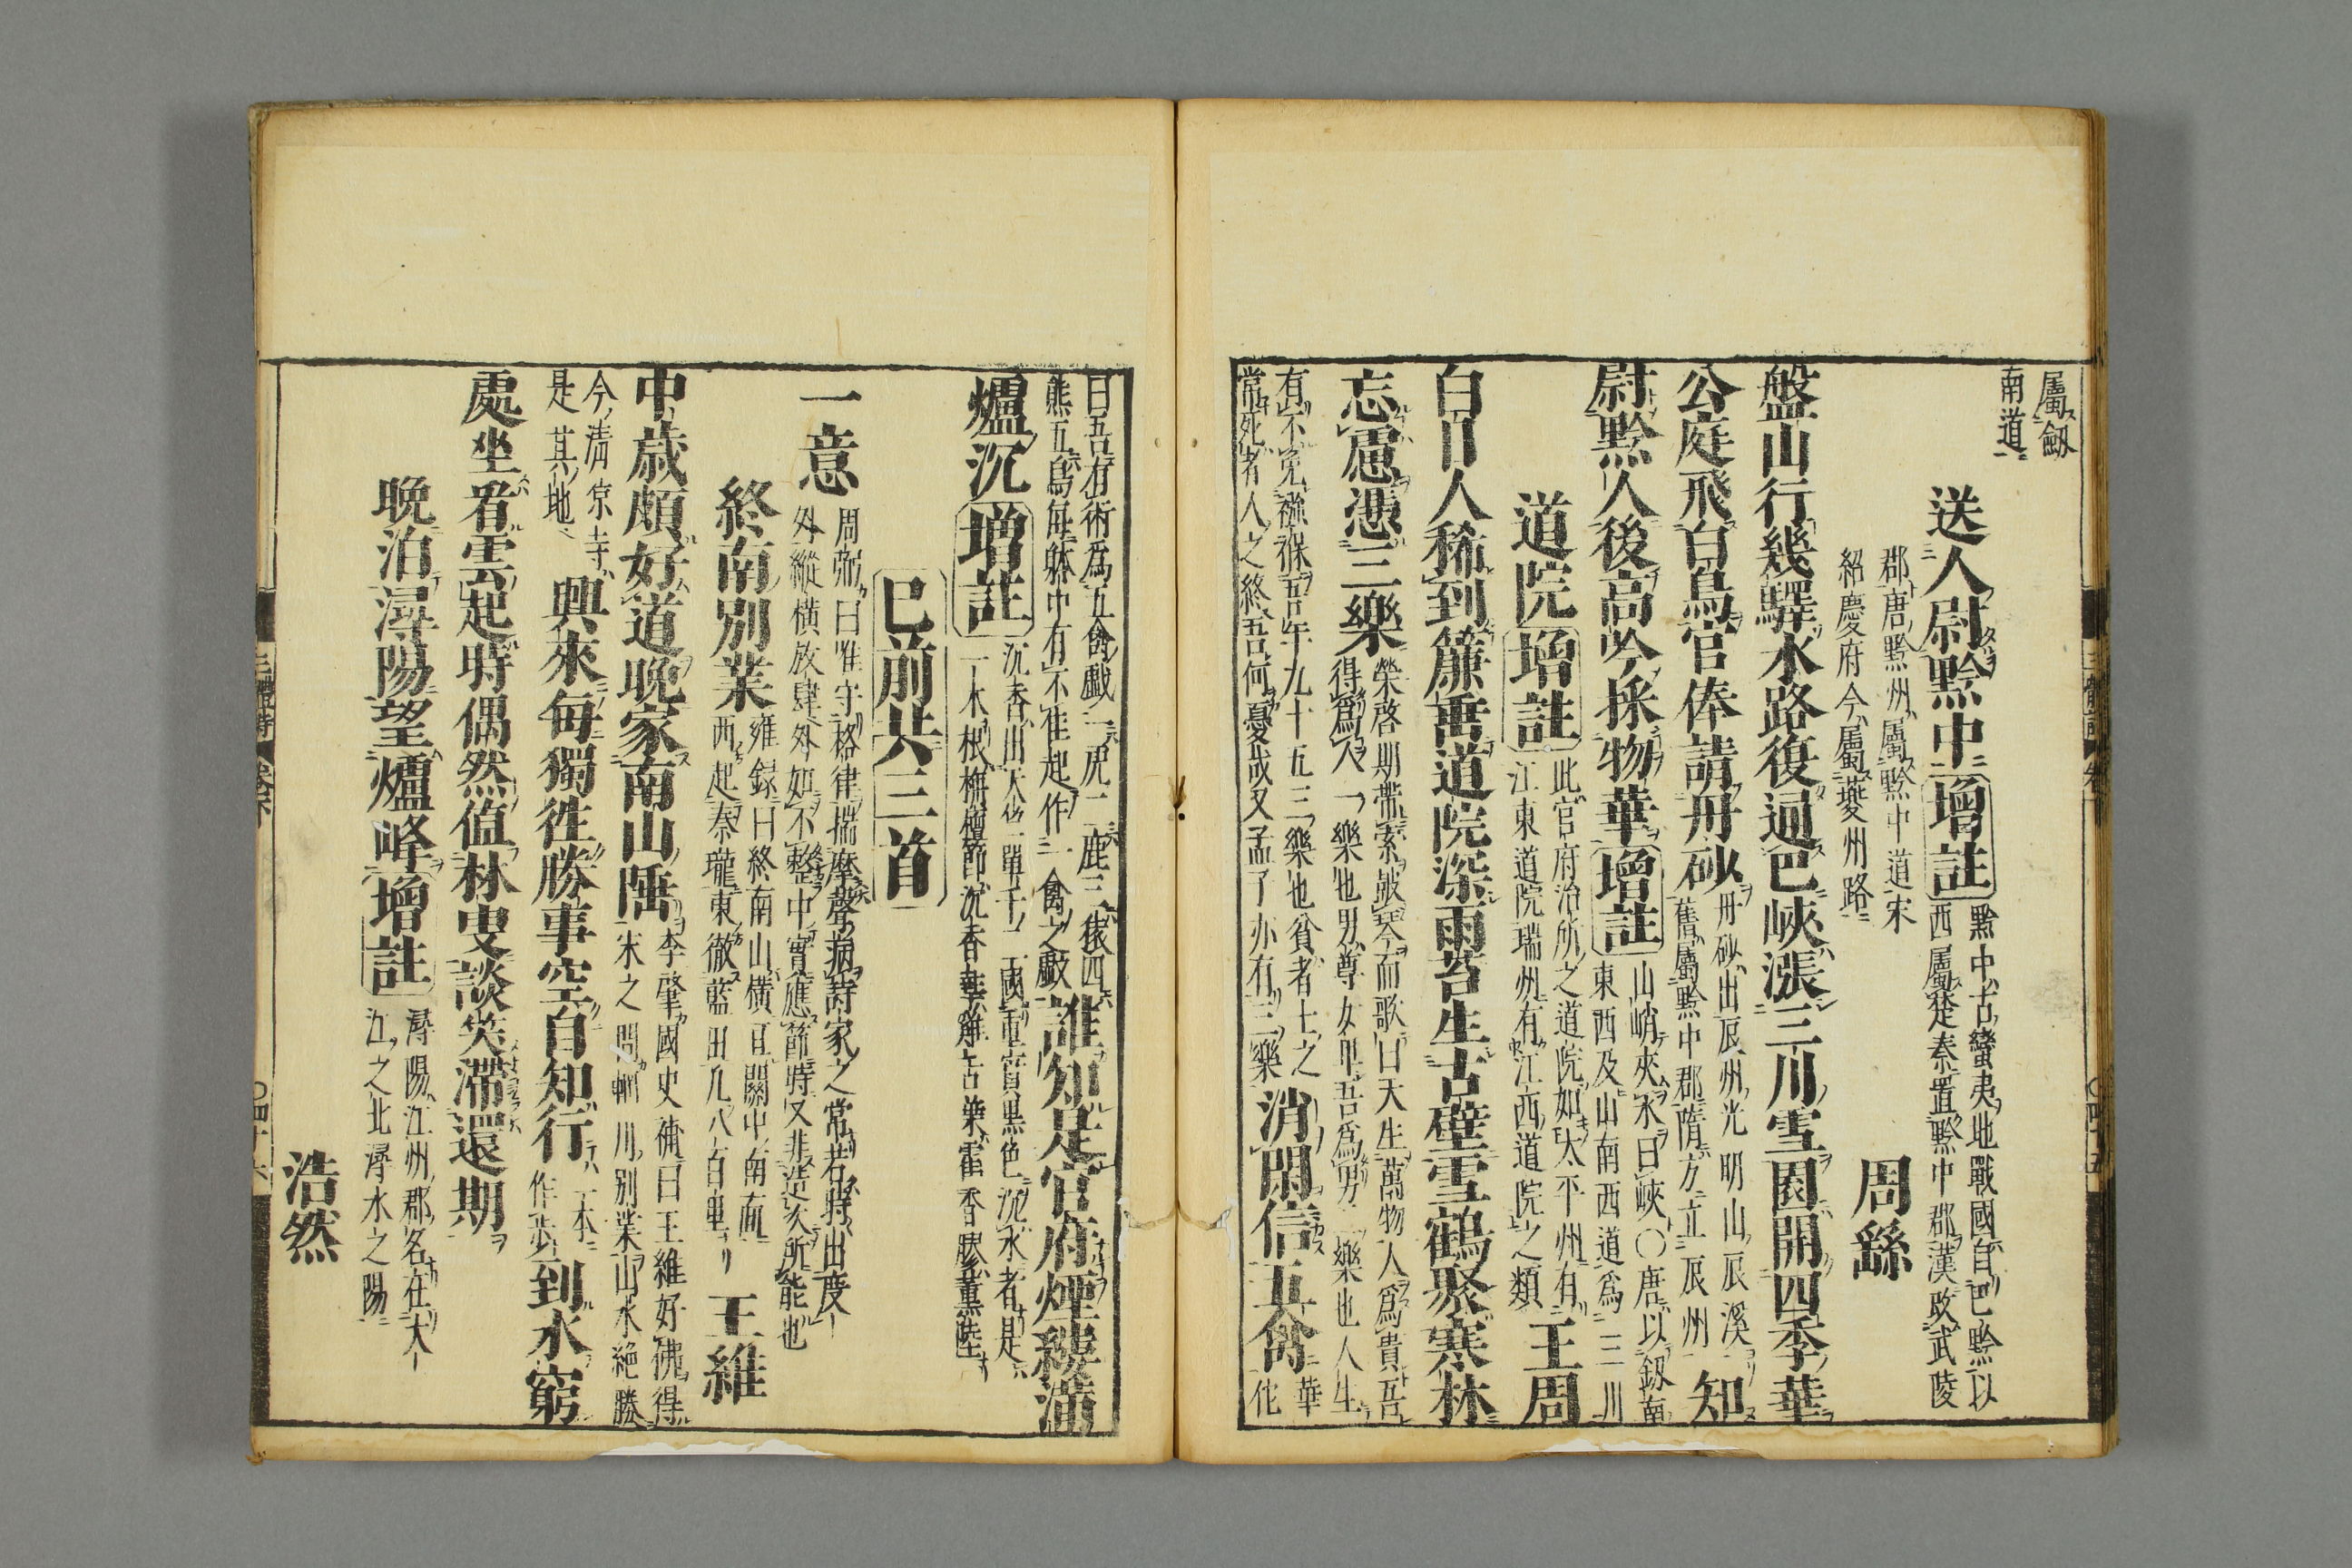 屬劔
南道
送人尉黔中 增註 黔中古蠻夷地戰國自巴黔以
西屬楚秦置黔中郡漢改武陵
郡唐黔州屬黔中道宋
紹慶府今屬夔州路
周繇
盤山行幾驛水路復過巴峽漲三川雪園開四季華
公庭飛白鳥官俸請丹砂 丹砂出辰州光明山辰溪
舊屬黔中郡隋方立辰州 知
尉黔人後高吟採物華 增註 山峭夾水曰峽〇唐以劔南
東西及山南西道為三川
道院 增註 此官府治所之道院如太平州有
江東道院瑞州有江西道院之類 王周
白日人稀到簾垂道院深雨苔生古壁雪鶴聚寒林
忘慮憑三樂 榮啓期帶索皷琴而歌曰天生萬物人爲貴吾
得爲人一樂也男尊女卑吾爲男二樂也人生
有不免襁褓吾年九十五三樂也貧者士之
常死者人之終吾何憂哉又孟子亦有三樂 消閑信五禽 華
佗
曰吾有術爲五禽戲一虎二鹿三猨四
熊五鳥每躰中有不佳起作一禽之戲 誰知是官府煙縷滿
爐沉 增註 沉香出天竺單于二國重實黒色沉水者是
一木根栴檀節沉香華雞舌葉霍香膠薫陸
巳前共三首
一意 周弼曰唯守格律揣摩聲病詩家之常若時出度
外縱橫放肆外如不整中實應節時又非造次所能也
終南別業 雍録曰終南山橫亘關中南面
西起秦隴東徹藍田凡八百里 王維
中歳頗好道晚家南山陲 李肇國史補曰王維好佛得
宋之問輞川別業山水絶勝
今清凉寺
是其地 興來每獨徃勝事空自知行 一本
作步 到水窮
處坐看雲起時偶然值林叟談笑滯還期
晚泊潯陽望爐峰 增註 潯陽江州郡名在大
江之北潯水之陽
浩然